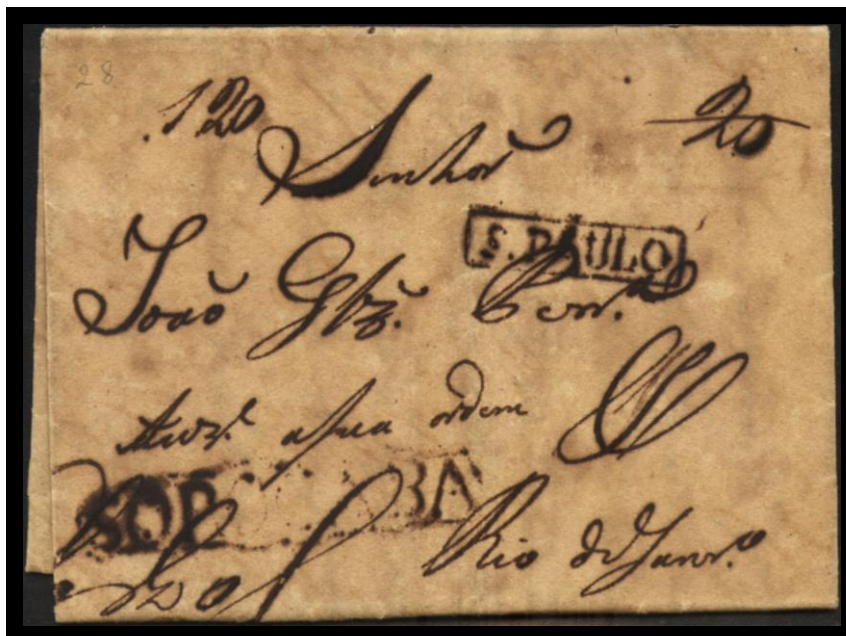 28
120 20
Senhor
S. PAULO
João Glz. Perr.ª
Auz.e a sua ordem
SOR BA
Rio de Janr.o